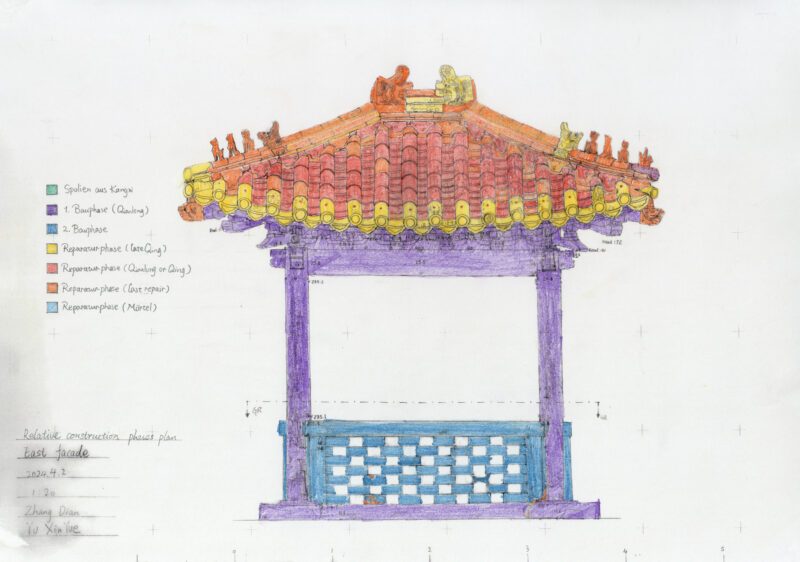 Spolien aus Kangxi
1. Bauphase (Qianlong)
2. Bauphase
Reparaturphase (late Qing)
Reparaturphase (Qianlong or Qing)
Reparaturphase (last repair)
Reparaturphase (Mörtel)
295.1
Relative construction phases plan
East facade
2024.4.2
1:20
Zhang Dian
Yu Xin Yue
1
0
1
2
3
4
5